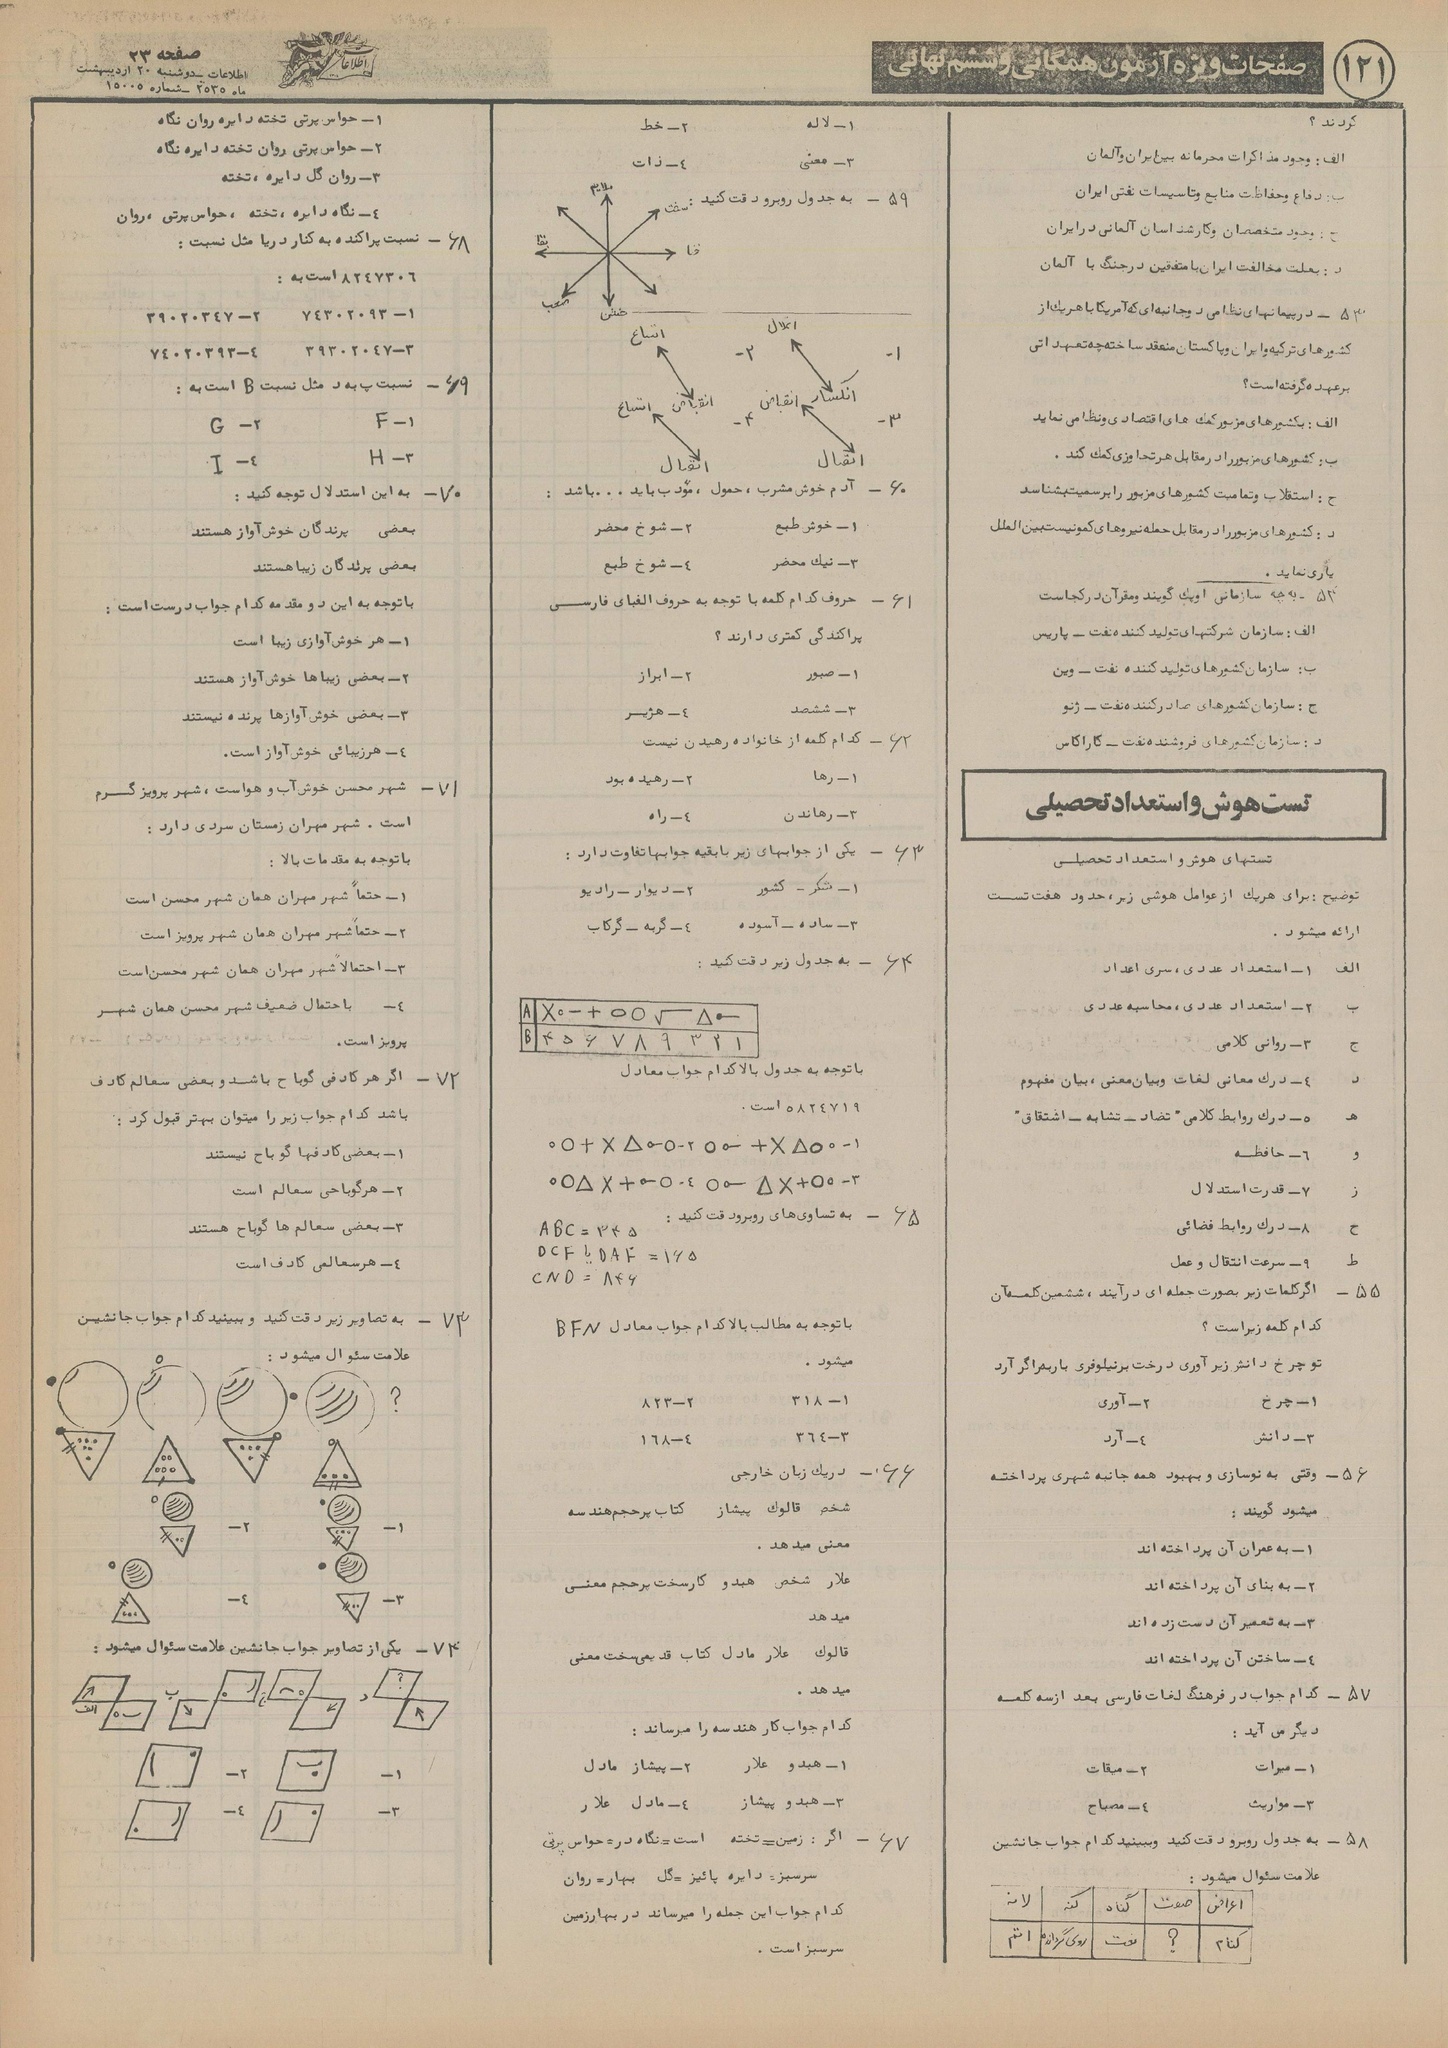 ۱۲۱
صفحات ویژه آزمون همگانی و ششم نهائی
اطلاعات
صفحه ۲۳
اطلاعات ـ دوشنبه ۲۰ اردیبهشت
ماه ۲۵۳۵ ـ شماره ۱۵۰۰۵
کردند ؟
الف : وجود مذاکرات محرمانه بین ایران و آلمان
ب : دفاع وحفاظت منابع وتاسیسات نفتی ایران
ج : وجود متخصصان وکارشناسان آلمانی در ایران
د : بعلت مخالفت ایران با متفقین در جنگ با آلمان
۵۳ ـ در پیمانهای نظامی دوجانبه ای که آمریکا با هریك از
کشورهای ترکیه و ایران و پاکستان منعقد ساخته چه تعهداتی
برعهده گرفته است؟
الف : بکشورهای مزبور کمك های اقتصادی ونظامی نماید
ب : کشورهای مزبور را در مقابل هر تجاوزی کمك کند .
ج : استقلال وتمامیت کشورهای مزبور را برسمیت بشناسد
د : کشورهای مزبور را در مقابل حمله نیروهای کمونیست بین الملل
یاری نماید .
۵۴ ـ به چه سازمانی اوپك گویند ومقرآن در کجاست
الف : سازمان شرکتهای تولید کننده نفت ـ پاریس
ب : سازمان کشورهای تولید کننده نفت ـ وین
ج : سازمان کشورهای صادر کننده نفت ـ ژنو
د : سازمان کشورهای فروشنده نفت ـ کاراکاس
تست هوش و استعداد تحصیلی
تستهای هوش و استعداد تحصیلی
توضیح : برای هریك از عوامل هوشی زیر، حدود هفت تست
ارائه میشود .
الف ۱ـ استعداد عددی، سری اعداد
ب ۲ـ استعداد عددی، محاسبه عددی
ج ۳ـ روانی کلامی
د ٤ـ درك معانی لغات وبیان معنی، بیان مفهوم
هـ ٥ـ درك روابط کلامی "تضاد ـ تشابه ـ اشتقاق"
و ٦ـ حافظه
ز ۷ـ قدرت استدلال
ح ۸ـ درك روابط فضائی
ط ۹ـ سرعت انتقال و عمل
۵۵ ـ اگر کلمات زیر بصورت جمله ای درآیند، ششمین کلمه آن
کدام کلمه زیر است ؟
تو چرخ دانش زیر آوری درخت بر نیلوفری بار بفر اگر آرد
۱ـ چرخ ۲ـ آوری
۳ـ دانش ٤ـ آرد
۵۶ ـ وقتی به نوسازی و بهبود همه جانبه شهری پرداخته
میشود گویند :
۱ـ به عمران آن پرداخته اند
۲ـ به بنای آن پرداخته اند
۳ـ به تعمیر آن دست زده اند
٤ـ ساختن آن پرداخته اند
۵۷ ـ کدام جواب در فرهنگ لغات فارسی بعد از سه کلمه
دیگر می آید :
۱ـ میراث ۲ـ میقات
۳ـ مواریث ٤ـ مصباح
۵۸ ـ به جدول روبرو دقت کنید وببینید کدام جواب جانشین
علامت سئوال میشود :
اعراض صفت گناه کنه لانه
کنام ؟ اثم
۱ـ لاله ۲ـ خط
۳ـ معنی ٤ـ ذات
۵۹ ـ به جدول روبرو دقت کنید :
ملایم
سخت
فنا
بقا
صعب
خشن
۱ـ ۲ـ
اتساع
انکسار انقباض
۳ـ ۴ـ
انقباض اتساع
انتقال انتقال
۶۰ ـ آدم خوش مشرب، حمول ، مؤدب باید ... باشد :
۱ـ خوش طبع ۲ـ شوخ محضر
۳ـ نیك محضر ٤ـ شوخ طبع
۶۱ ـ حروف کدام کلمه با توجه به حروف الفبای فارسی
پراکندگی کمتری دارند ؟
۱ـ صبور ۲ـ ابراز
۳ـ ششصد ٤ـ هژیر
۶۲ ـ کدام کلمه از خانواده رهیدن نیست
۱ـ رها ۲ـ رهیده بود
۳ـ رهاندن ٤ـ راه
۶۳ ـ یکی از جوابهای زیر با بقیه جوابها تفاوت دارد :
۱ـ شکر ـ کشور ۲ـ دیوار ـ رادیو
۳ـ ساده ـ آسوده ٤ـ گربه ـ گرکاب
۶۴ ـ به جدول زیر دقت کنید :
A X ∘− + ○ ○ √ △ ∘−
B ۴ ۵ ۶ ۷ ۸ ۹ ۳ ۲ ۱
باتوجه به جدول بالا کدام جواب معادل
۵۸۲٤۷۱۹ است .
۶۵ ـ به تساوی های روبرو دقت کنید :
ABC = ۳۴۵
DCF یا DAF = ۱۶۵
CND = ۸۴۶
باتوجه به مطالب بالا کدام جواب معادل BFN
میشود .
۱ـ ۳۱۸ ۲ـ ۸۲۳
۳ـ ۳٦٤ ٤ـ ۱٦۸
۶۶ ـ دریك زبان خارجی
شخص قالوك پیشاز کتاب پرحجم هندسه
معنی میدهد .
علار شخص هبدو کار سخت پرحجم معنی
میدهد
قالوك علار مادل کتاب قدیمی سخت معنی
میدهد .
کدام جواب کار هندسه را میرساند :
۱ـ هبدو علار ۲ـ پیشاز مادل
۳ـ هبدو پیشاز ٤ـ مادل علار
۶۷ ـ اگر : زمین = تخته است = نگاه در = حواس پرتی
سرسبز = دایره پائیز = گل بهار = روان
کدام جواب این جمله را میرساند در بهار زمین
سرسبز است .
۱ـ حواس پرتی تخته دایره روان نگاه
۲ـ حواس پرتی روان تخته دایره نگاه
۳ـ روان گل دایره ، تخته
٤ـ نگاه دایره ، تخته ، حواس پرتی ، روان
۶۸ ـ نسبت پراکنده به کنار دریا مثل نسبت :
۸۲٤۷۳۰٦ است به :
۱ـ ۷٤۳۰۲۰۹۳ ۲ـ ۳۹۰۲۰۳٤۷
۳ـ ۳۹۳۰۲۰٤۷ ٤ـ ۷٤۰۲۰۳۹۳
۶۹ ـ نسبت پ به د مثل نسبت B است به :
۱ـ F ۲ـ G
۳ـ H ٤ـ I
۷۰ ـ به این استدلال توجه کنید :
بعضی پرندگان خوش آواز هستند
بعضی پرندگان زیبا هستند
باتوجه به این دو مقدمه کدام جواب درست است :
۱ـ هر خوش آوازی زیبا است
۲ـ بعضی زیباها خوش آواز هستند
۳ـ بعضی خوش آوازها پرنده نیستند
٤ـ هر زیبائی خوش آواز است.
۷۱ ـ شهر محسن خوش آب و هواست ، شهر پرویز گرم
است . شهر مهران زمستان سردی دارد :
باتوجه به مقدمات بالا :
۱ـ حتماً شهر مهران همان شهر محسن است
۲ـ حتماً شهر مهران همان شهر پرویز است
۳ـ احتمالاً شهر مهران همان شهر محسن است
٤ـ باحتمال ضعیف شهر محسن همان شهر
پرویز است.
۷۲ ـ اگر هر کادفی گوباح باشد و بعضی سعالم کادف
باشد کدام جواب زیر را میتوان بهتر قبول کرد :
۱ـ بعضی کادفها گوباح نیستند
۲ـ هر گوباحی سعالم است
۳ـ بعضی سعالم ها گوباح هستند
٤ـ هر سعالمی کادف است
۷۳ ـ به تصاویر زیر دقت کنید و ببینید کدام جواب جانشین
علامت سئوال میشود :
?
۱ـ ۲ـ
۳ـ ٤ـ
۷۴ ـ یکی از تصاویر جواب جانشین علامت سئوال میشود :
؟ د ج ب الف
۱ـ ۲ـ
۳ـ ٤ـ